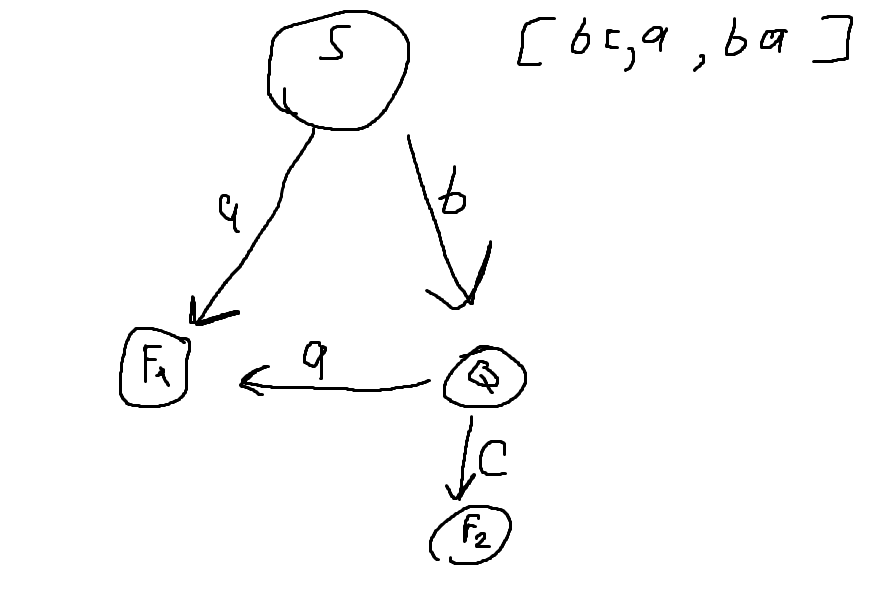 S [ bc, a , ba ]
a b
F1 a Q
C
F2